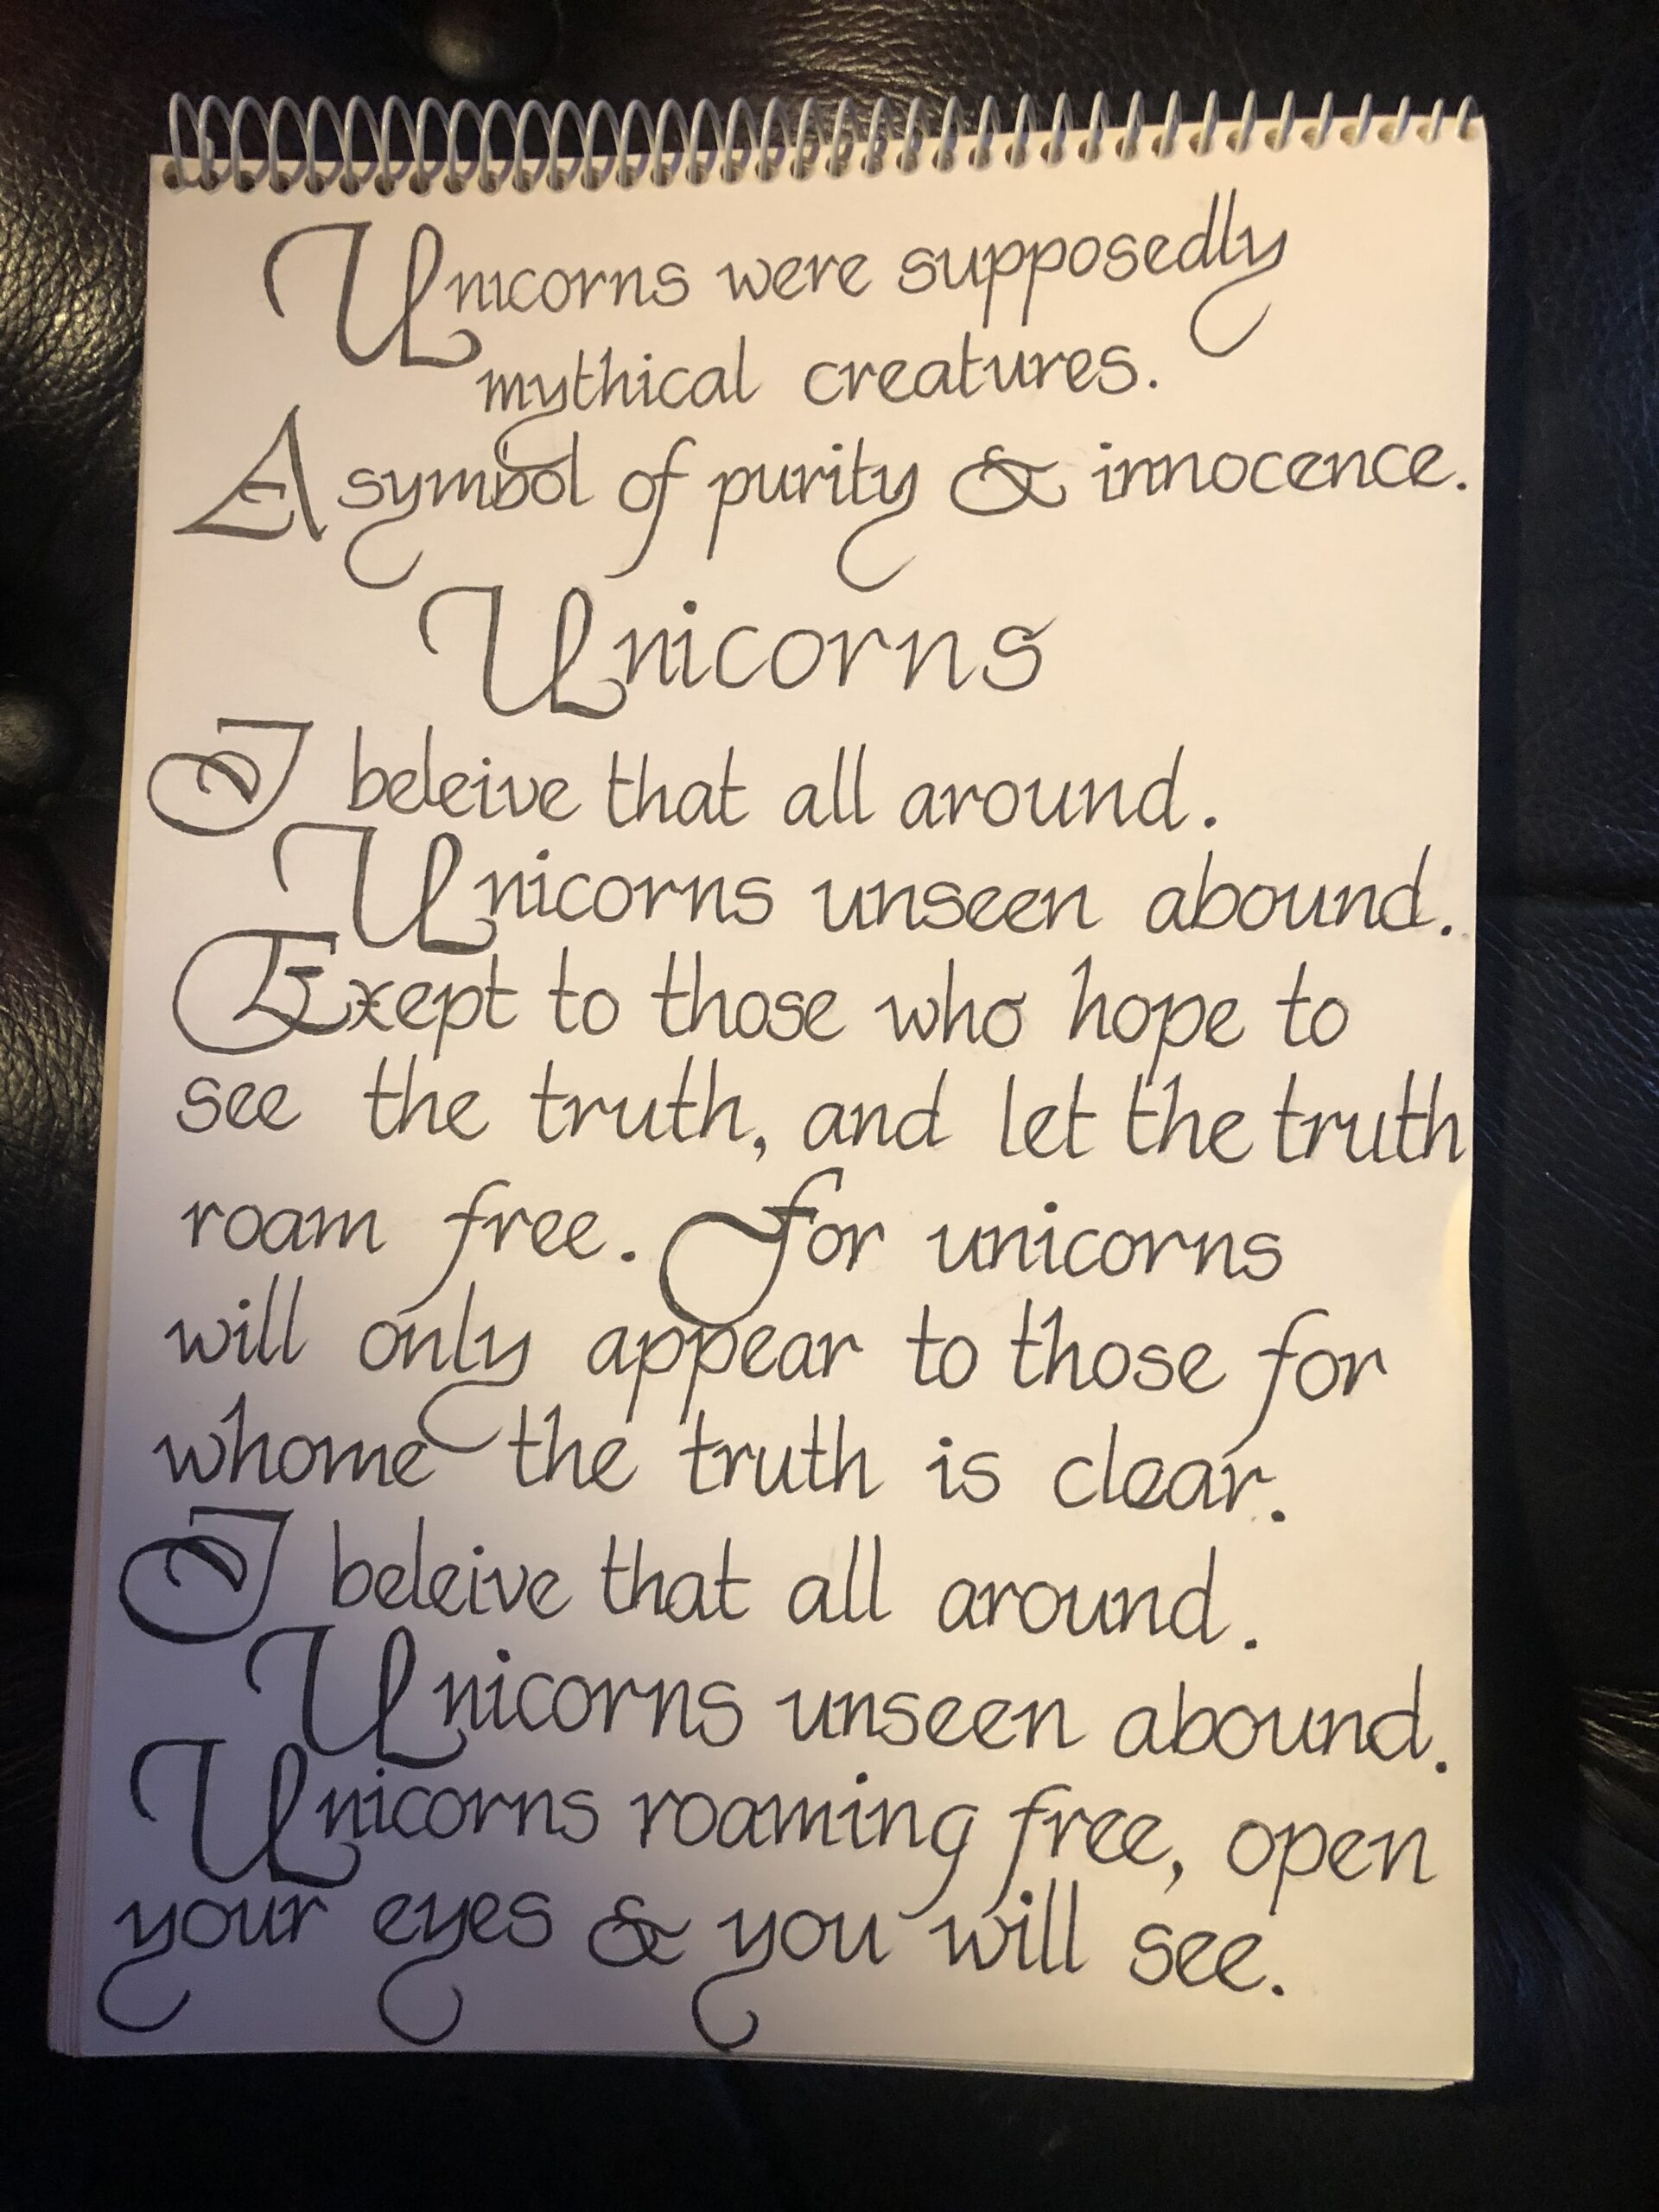 Unicorns were supposedly
mythical creatures.
A symbol of purity & innocence.
Unicorns
I beleive that all around.
Unicorns unseen abound.
Exept to those who hope to
see the truth, and let the truth
roam free. For unicorns
will only appear to those for
whome the truth is clear.
I beleive that all around.
Unicorns unseen abound.
Unicorns roaming free, open
your eyes & you will see.